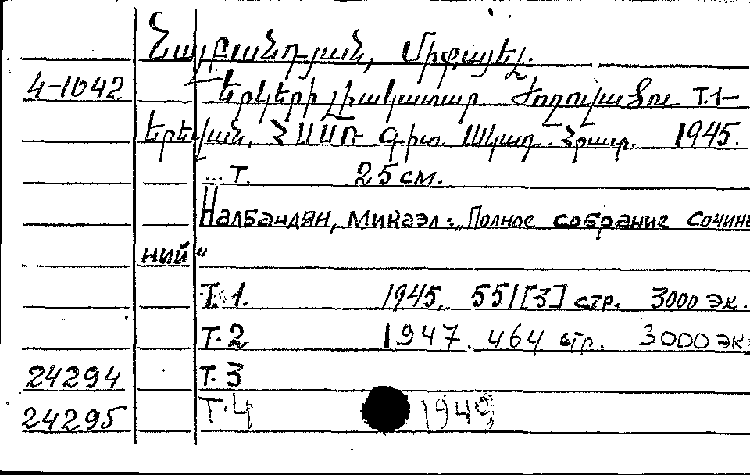 Նալբանդյան, Միքայել.
4-1042 Երկերի լիակատար ժողովածու Т.1-
Երևան, ՀՍՍՌ Գիտ. Ակադ. Հրատ. 1945.
... т. 25 см.
Налбандян, Микаэл: „Полное собрание сочине
ний“
Т. 1. 1945. 551[3] стр. 3000 эк.
Т. 2 1947. 464 стр. 3000 эк.
24294 Т. 3
24295 Т. 4 1949